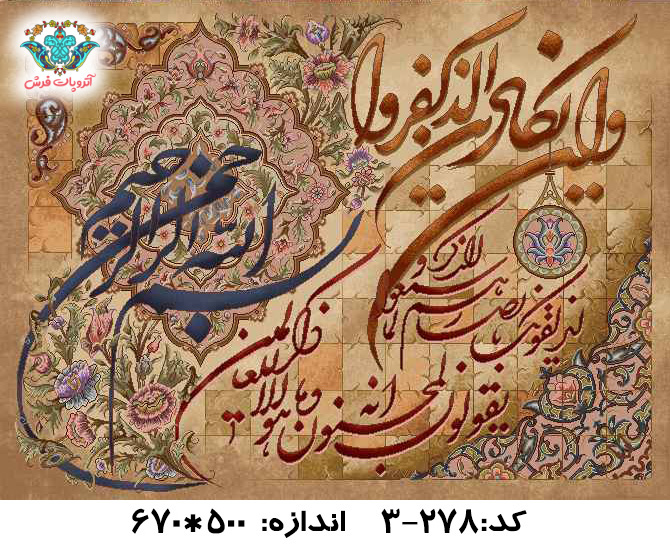 آتروپات فرش
بسم الله الرحمن الرحیم
وان یکاد الذین کفروا
لیزلقونک بابصارهم لما سمعوا الذکر و
یقولون انه لمجنون وما هو الا ذکر للعالمین
کد:۲۷۸-۳ اندازه: ۵۰۰*۶۷۰